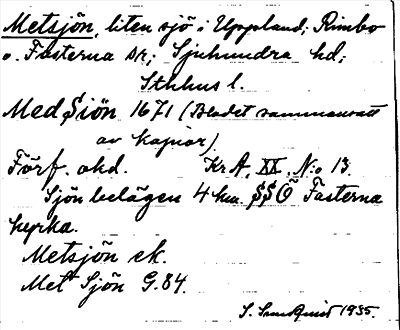 Metsjön, liten sjö i Uppland; Rimbo
o. Fasterna skr; Sjuhundra hd,
Sthlms l.
Med Siön 1671 (Bladet sammansatt
av kopior).
Förf. okd. KrA, XX, N:o 13.
Sjön belägen 4 km. SSÖ Fasterna
kyrka.
Metsjön ek.
Met Sjön G.84.
S. 1935.